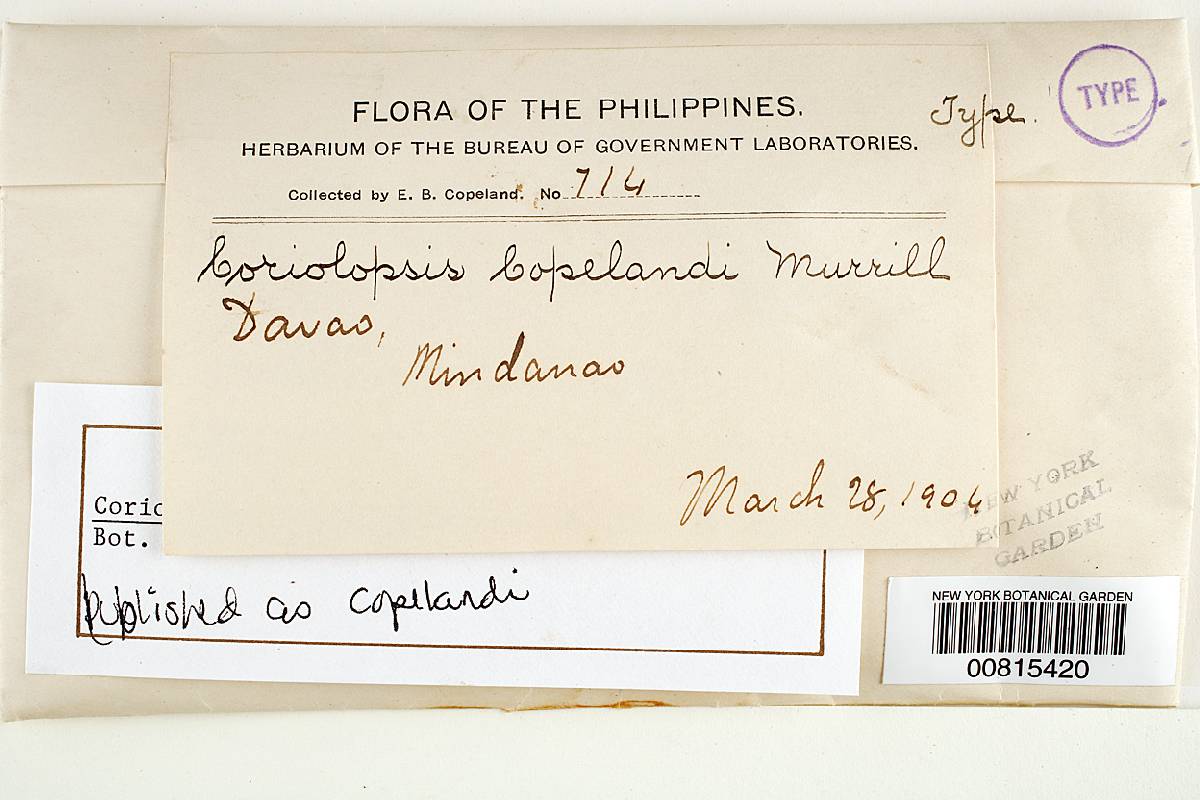 FLORA OF THE PHILIPPINES.
Type.
TYPE
HERBARIUM OF THE BUREAU OF GOVERNMENT LABORATORIES.
Collected by E. B. Copeland. No 714
Coriolopsis Copelandi Murrill
Davao,
Mindanao
March 28, 1904
NEW YORK
BOTANICAL
GARDEN
Corio
Bot.
published as copelandi
NEW YORK BOTANICAL GARDEN
00815420